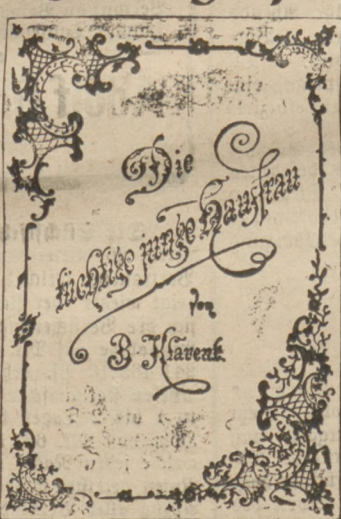 Die
tüchtige junge Hausfrau
von
B. Klarent.